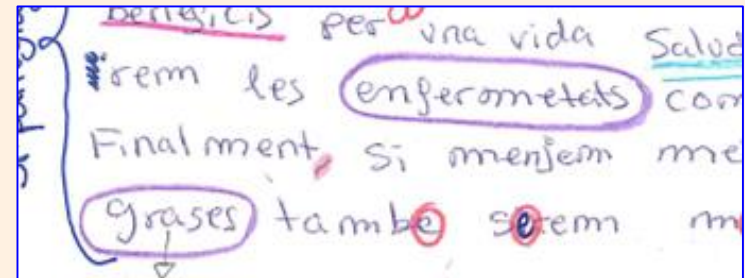 benificis per una vida Salud
irem les enferometats com
Finalment, si menjem me
grases també serem m